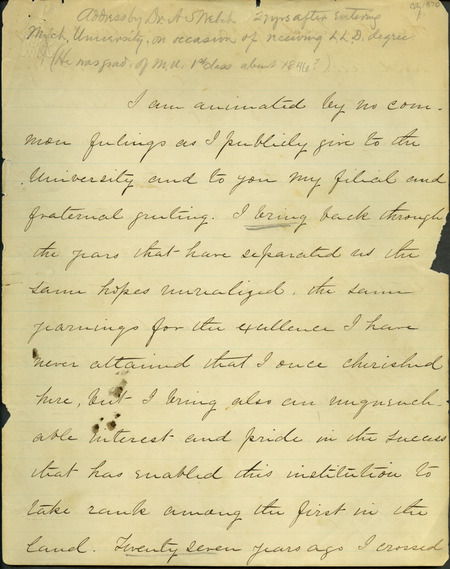 Address by Dr. A S Welch 27 yrs after Entering
Mich, University. on occasion of receiving LLD. degree
(He was grad. of M.U. 1st class about 1846?)
I am animated by no com-
mon feelings as I publicly give to the
University and to you my filial and
fraternal greeting. I bring back through
the years that have separated us the
same hopes unrealized, the same
yearnings for the excellence I have
never attained that I once cherished
here, but I bring also an unquench-
able interest and pride in the success
that has enabled this institution to
take rank among the first in the
land. Twenty seven years ago I crossed